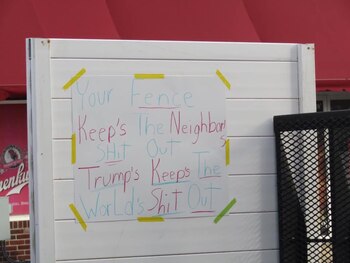 Your Fence
Keep's The Neighbors
Shit Out
Trump's Keeps The
World's Shit Out